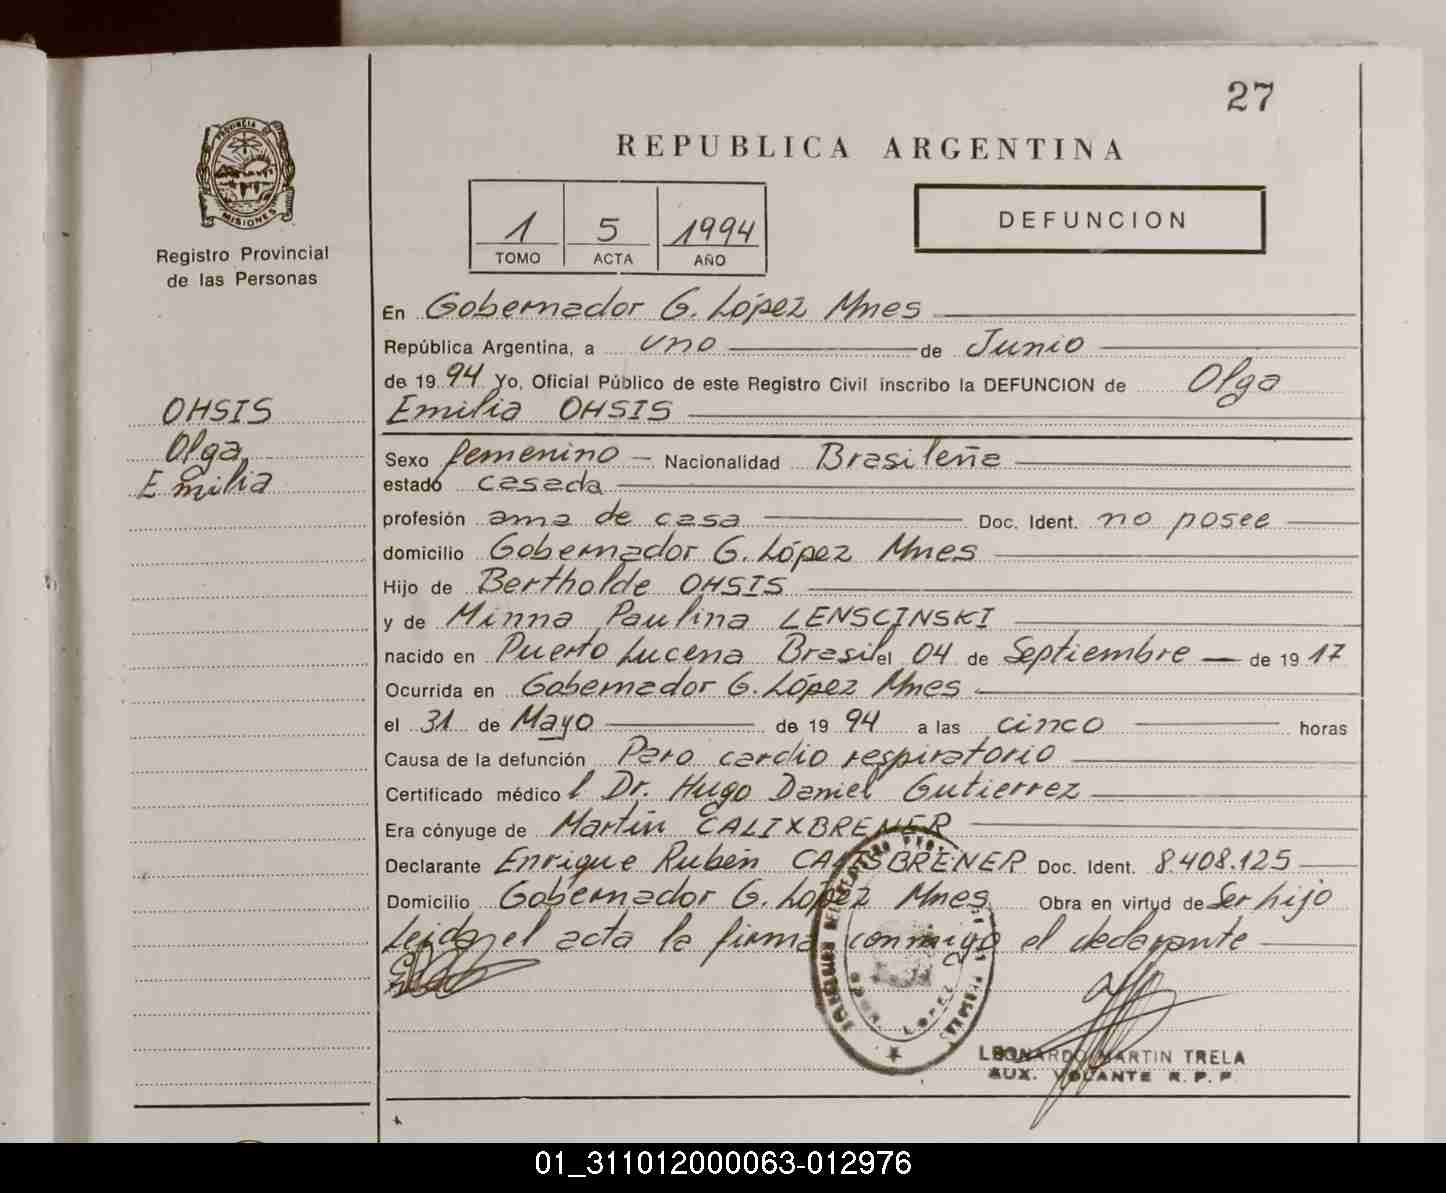 27
REPUBLICA ARGENTINA
PROVINCIA
MISIONES
Registro Provincial
de las Personas
1 5 1994
TOMO ACTA AÑO
DEFUNCION
OHSIS
Olga
Emilia
En Gobernador G. López Mnes
República Argentina, a uno de Junio
de 1994 Yo, Oficial Público de este Registro Civil inscribo la DEFUNCION de Olga
Emilia OHSIS
Sexo femenino Nacionalidad Brasileña
estado casada
profesión ama de casa Doc. Ident. no posee
domicilio Gobernador G. López Mnes
Hijo de Bertholde OHSIS
y de Minna Paulina LENSCINSKI
nacido en Puerto Lucena Brasil el 04 de Septiembre de 1917
Ocurrida en Gobernador G. López Mnes
el 31 de Mayo de 1994 a las cinco horas
Causa de la defunción Paro cardio respiratorio
Certificado médico Dr. Hugo Daniel Gutierrez
Era cónyuge de Martín CALIXBRENER
Declarante Enrique Rubén CALISBRENER Doc. Ident. 8.408.125
Domicilio Gobernador G. López Mnes Obra en virtud de Ser hijo
Leida el acta la firma conmigo el declarante
LEONARDO MARTIN TRELA
AUX. VOLANTE R. P. P.
01_311012000063-012976